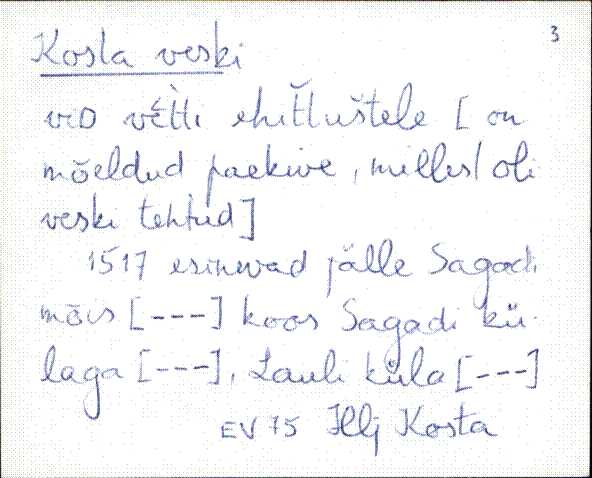 3
Kosta veski
viD vèt̀ti ehit̆tuštele [on
mõeldud paekive, millest oli
veski tehtud]
1517 esinevad jälle Sagadi
mõis [---] koos Sagadi kü-
laga [---], Lauli küla [---]
EV 75 Hlj Kosta